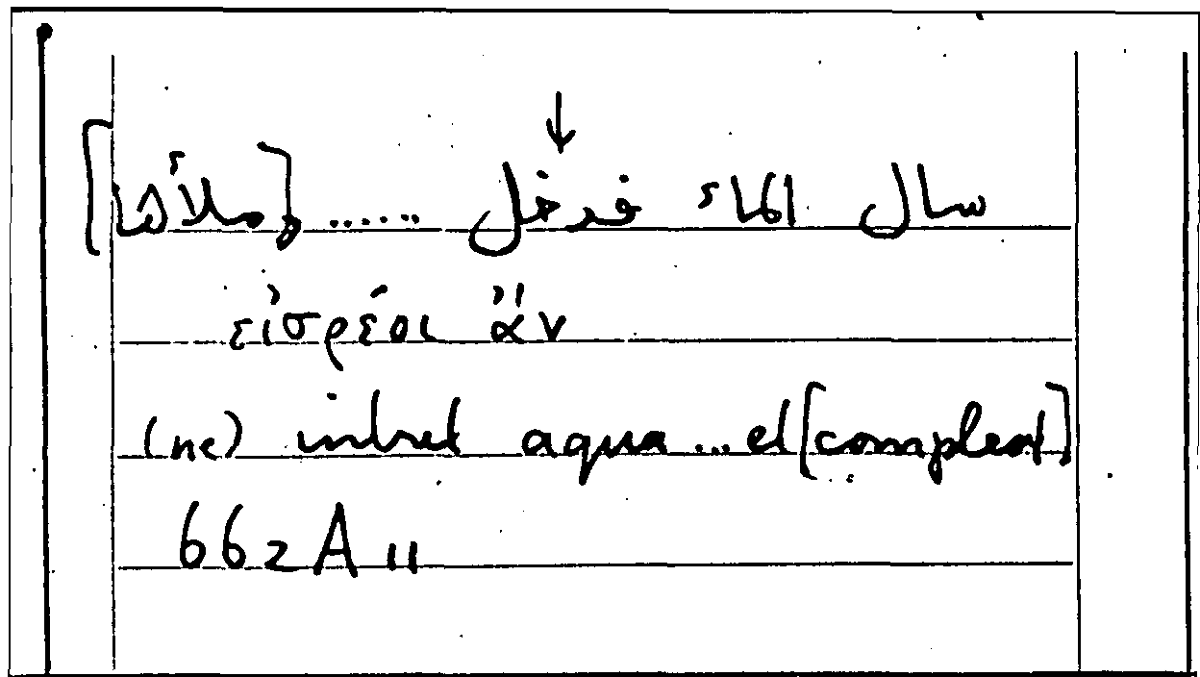 ↓
سال الماء فدخل ..... و[ملأها]
εἰσρέοι ἄν
(ne) intret aqua ... et [compleat]
662 A 11